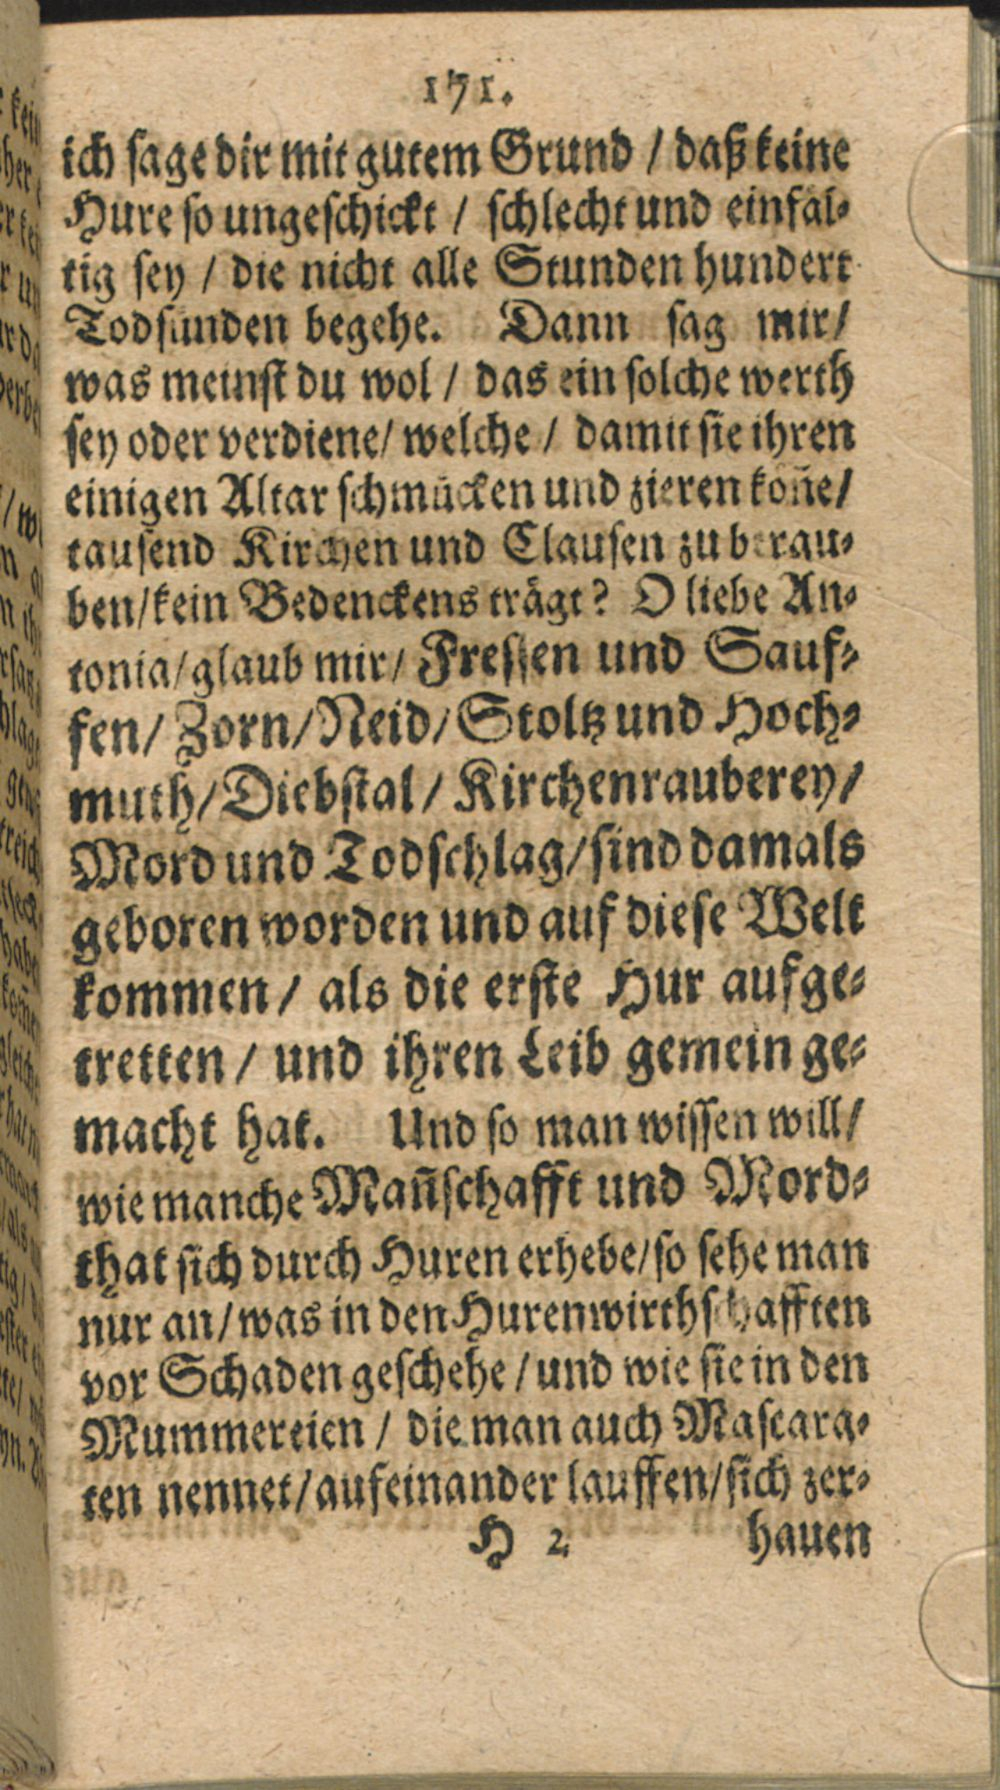 171.
ich sage dir mit gutem Grund / daß keine
Hure so ungeschickt / schlecht und einfäl-
tig sey / die nicht alle Stunden hundert
Todsünden begehe. Dann sag mir/
was meinst du wol / das ein solche werth
sey oder verdiene/ welche / damit sie ihren
einigen Altar schmücken und zieren kön̄e/
tausend Kirchen und Clausen zu berau-
ben/kein Bedenckens trägt? O liebe An-
tonia/glaub mir/ Fressen und Sauf-
fen/ Zorn/Neid/Stoltz und Hoch-
muth/Diebstal/ Kirchenrauberey/
Mord und Todschlag/sind damals
geboren worden und auf diese Welt
kommen/ als die erste Hur aufge-
tretten / und ihren Leib gemein ge-
macht hat. Und so man wissen will/
wie manche Man̄schafft und Mord-
that sich durch Huren erhebe/so sehe man
nur an/was in den Hurenwirthschafften
vor Schaden geschehe/und wie sie in den
Mummereien / die man auch Mascara-
ten nennet/aufeinander lauffen/sich zer-
H 2 hauen